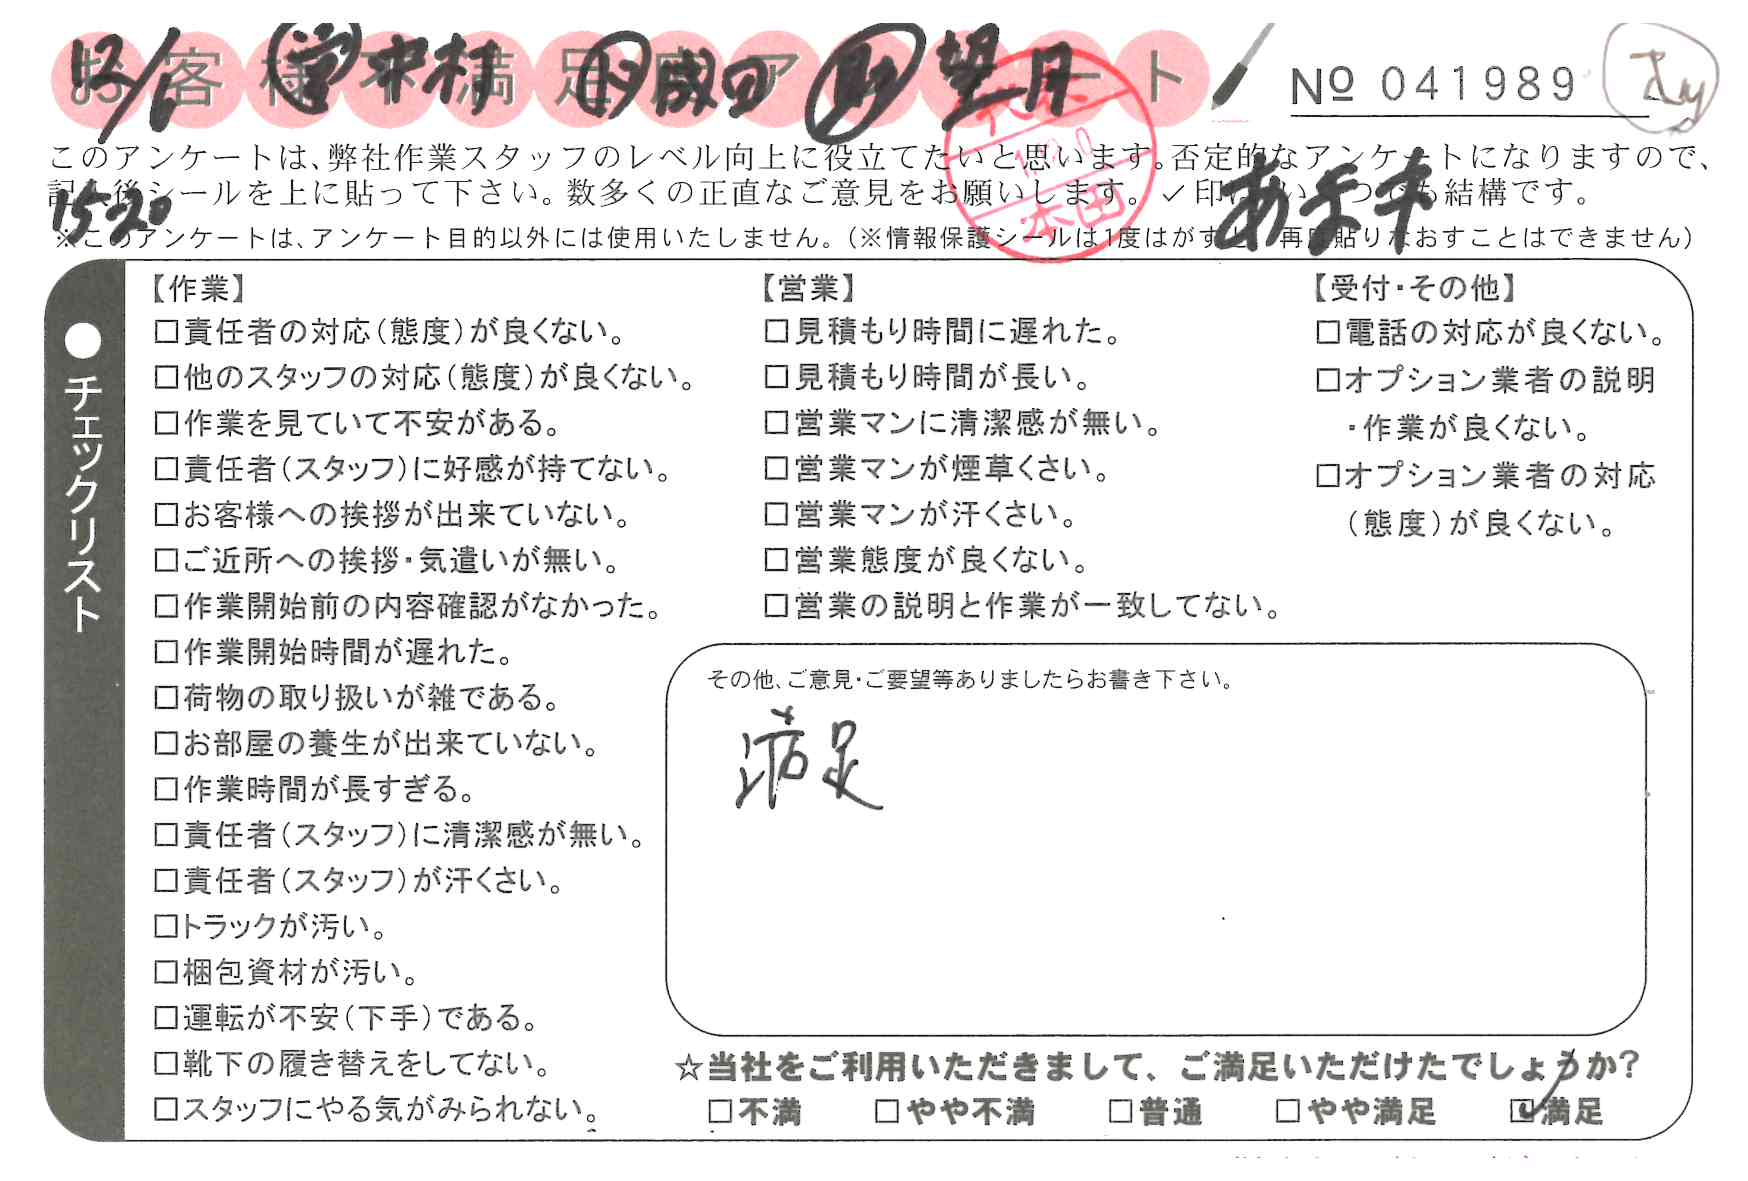 お客様不満足度アンケート
12/6 営 中村 ト 成田 助 望月
No 041989
このアンケートは、弊社作業スタッフのレベル向上に役立てたいと思います。否定的なアンケートになりますので、
記入後シールを上に貼って下さい。数多くの正直なご意見をお願いします。✓印はいくつでも結構です。
15-20
本田
※このアンケートは、アンケート目的以外には使用いたしません。(※情報保護シールは1度はがすと、再度貼りなおすことはできません)
●チェックリスト
【作業】
□責任者の対応(態度)が良くない。
□他のスタッフの対応(態度)が良くない。
□作業を見ていて不安がある。
□責任者(スタッフ)に好感が持てない。
□お客様への挨拶が出来ていない。
□ご近所への挨拶・気遣いが無い。
□作業開始前の内容確認がなかった。
□作業開始時間が遅れた。
□荷物の取り扱いが雑である。
□お部屋の養生が出来ていない。
□作業時間が長すぎる。
□責任者(スタッフ)に清潔感が無い。
□責任者(スタッフ)が汗くさい。
□トラックが汚い。
□梱包資材が汚い。
□運転が不安(下手)である。
□靴下の履き替えをしてない。
□スタッフにやる気がみられない。
【営業】
□見積もり時間に遅れた。
□見積もり時間が長い。
□営業マンに清潔感が無い。
□営業マンが煙草くさい。
□営業マンが汗くさい。
□営業態度が良くない。
□営業の説明と作業が一致してない。
【受付・その他】
□電話の対応が良くない。
□オプション業者の説明
・作業が良くない。
□オプション業者の対応
(態度)が良くない。
その他、ご意見・ご要望等ありましたらお書き下さい。
満足
☆当社をご利用いただきまして、ご満足いただけたでしょうか?
□不満 □やや不満 □普通 □やや満足 ☑満足